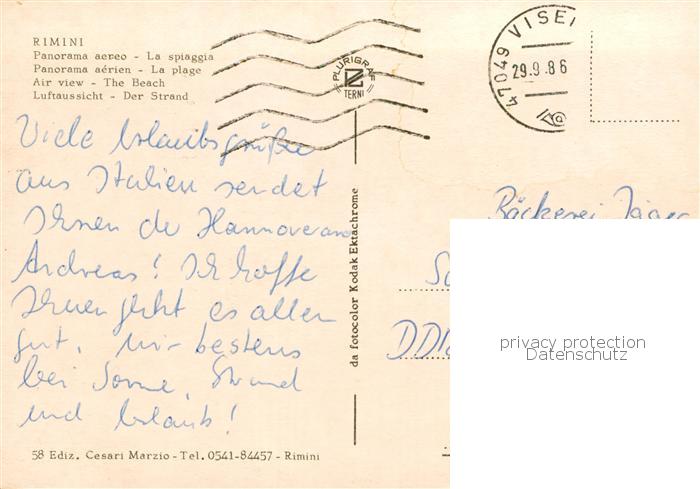 RIMINI
Panorama aereo - La spiaggia
Panorama aérien - La plage
Air view - The Beach
Luftaussicht - Der Strand
PLURIGRAF
TERNI
47049 VISE
29.9.86
Viele Urlaubsgrüße
aus Italien sendet
Ihnen der Hannoverane
Andreas! Ich hoffe
Ihnen geht es allen
gut. Mir bestens
bei Sonne, Strand
und Urlaub!
da fotocolor Kodak Ektachrome
Bäckerei Jäger
DD
privacy protection
Datenschutz
58 Ediz. Cesari Marzio - Tel. 0541-84457 - Rimini